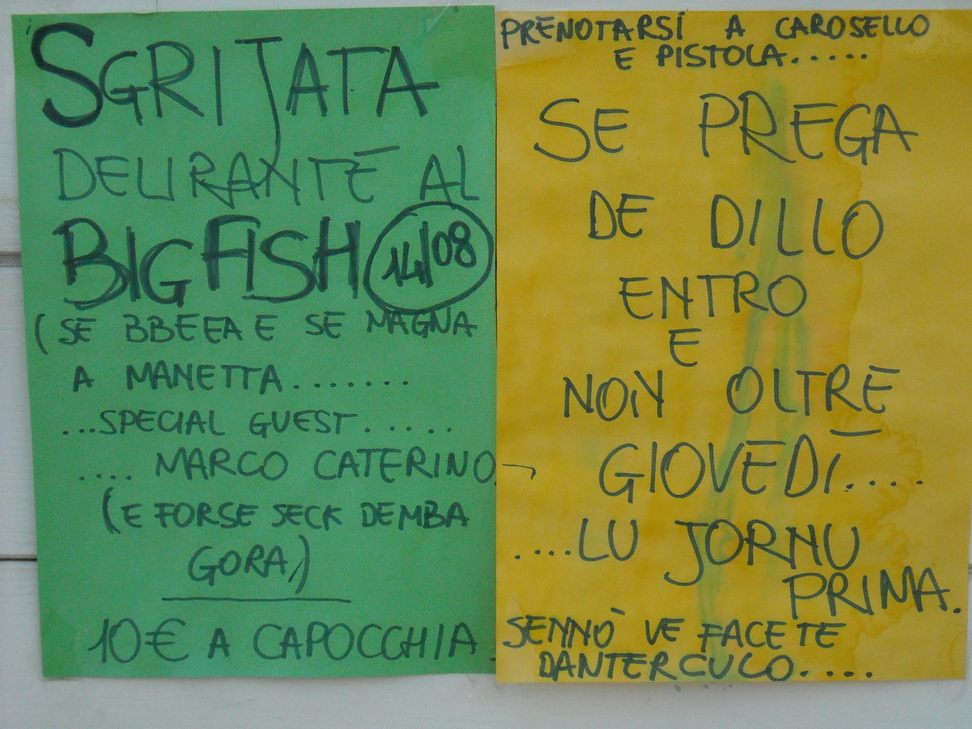 SGRIJATA
DELIRANTE AL
BIG FISH 14/08
(SE BBEEA E SE MAGNA
A MANETTA.......
...SPECIAL GUEST.....
.... MARCO CATERINO
(E FORSE SECK DEMBA
GORA,)
10€ A CAPOCCHIA
PRENOTARSI A CAROSELLO
E PISTOLA.....
SE PREGA
DE DILLO
ENTRO
E
NON OLTRE
GIOVEDÌ....
....LU JORNU
PRIMA.
SENNÒ VE FACETE
DANTERCULO....